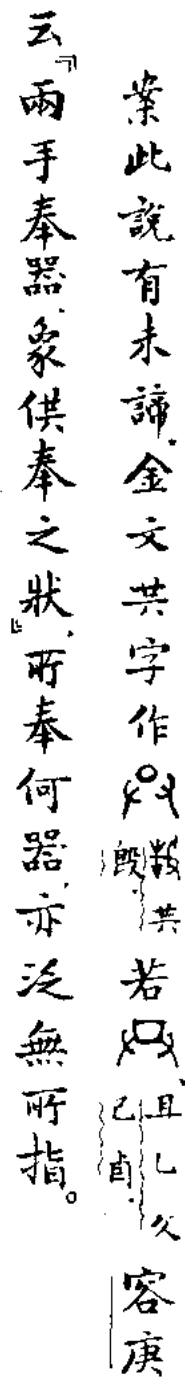 案此說有未諦。金文共字作𠬞叔共𣪘若𠬞且乙父己卣。容庚
云『兩手奉器、象供奉之狀』，所奉何器、亦泛無所指。